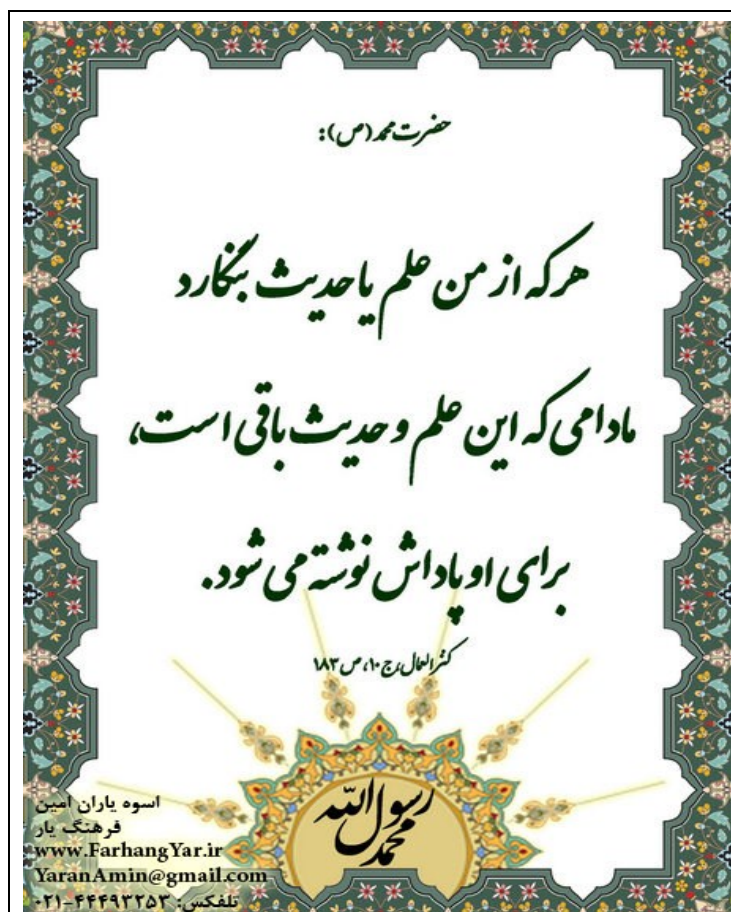 حضرت محمد (ص):
هرکه از من علم یا حدیث بنگارد
مادامی که این علم و حدیث باقی است،
برای او پاداش نوشته می شود.
کنز العمال، ج ۱۰، ص ۱۸۳
محمد رسول الله
اسوه یاران امین
فرهنگ یار
www.FarhangYar.ir
YaranAmin@gmail.com
تلفکس: ۴۴۴۹۳۲۵۳-۰۲۱